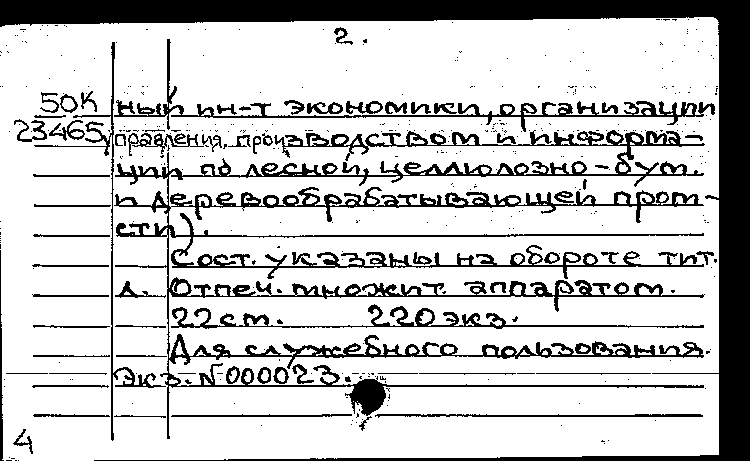 2.
50К ный ин-т экономики, организации
23465 управления, производством и информа-
ции по лесной, целлюлозно-бум.
и деревообрабатывающей пром-
сти).
Сост. указаны на обороте тит.
л. Отпеч. множит. аппаратом.
22 см. 220 экз.
Для служебного пользования.
Экз. № 000023.
4